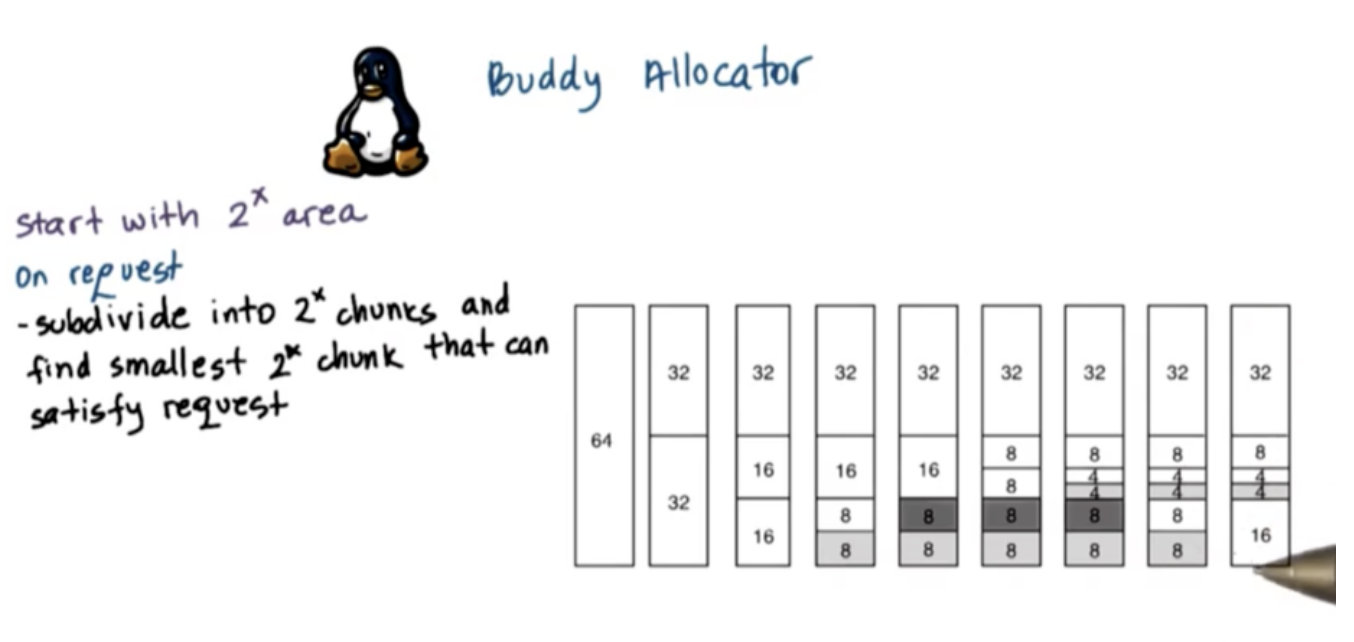 Buddy Allocator
start with 2^x area
on request
- subdivide into 2^x chunks and
find smallest 2^x chunk that can
satisfy request
64
32
32
32
16
16
32
16
8
8
32
16
8
8
32
8
8
8
8
32
8
4
4
8
8
32
8
4
4
8
8
32
8
4
4
16